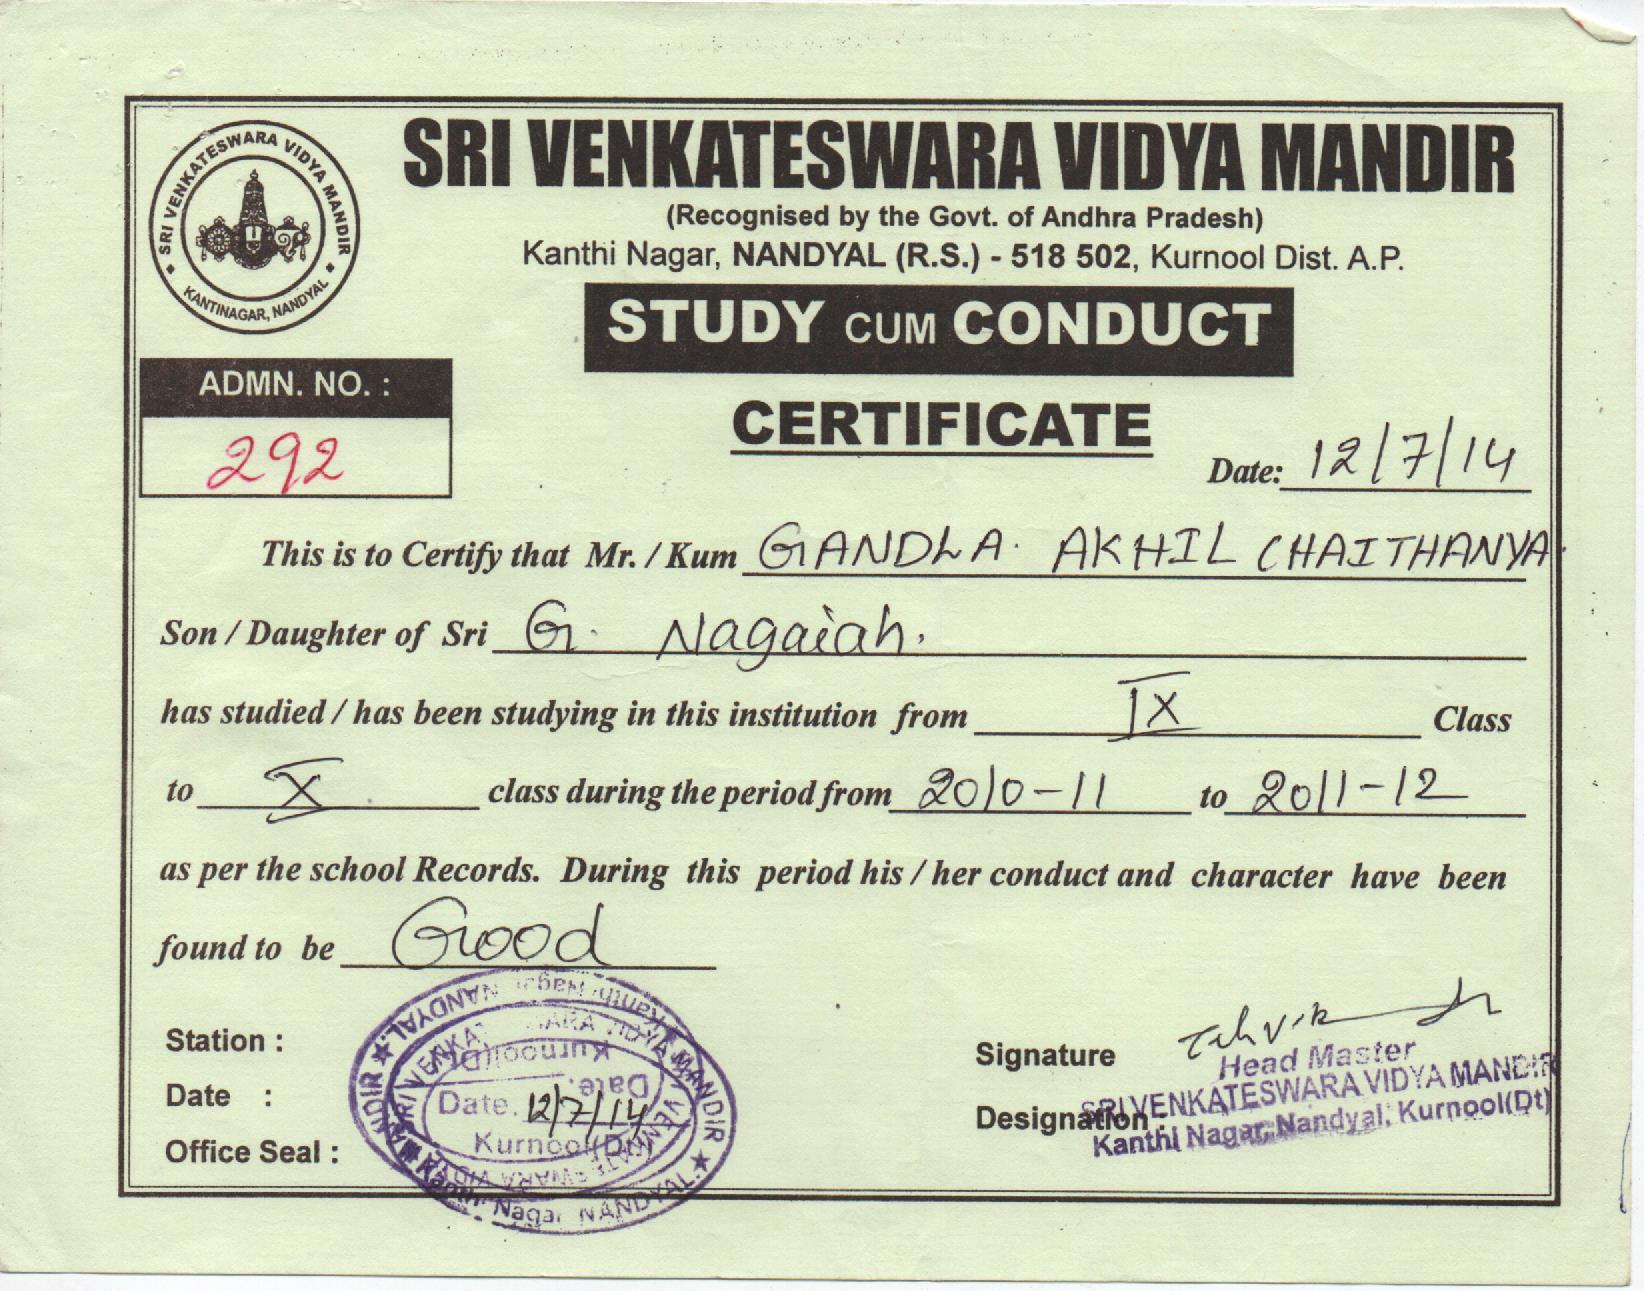 SRI VENKATESWARA VIDYA MANDIR
KANTINAGAR, NANDYAL
SRI VENKATESWARA VIDYA MANDIR
(Recognised by the Govt. of Andhra Pradesh)
Kanthi Nagar, NANDYAL (R.S.) - 518 502, Kurnool Dist. A.P.
STUDY CUM CONDUCT
CERTIFICATE
ADMN. NO. :
292
Date: 12/7/14
This is to Certify that Mr. / Kum GANDLA. AKHIL CHAITHANYA.
Son / Daughter of Sri G. Nagaiah.
has studied / has been studying in this institution from IX Class
to X class during the period from 2010-11 to 2011-12
as per the school Records. During this period his / her conduct and character have been
found to be Good
Station :
Date :
Office Seal :
Kanthi Nagar NANDYAL
Kurnool(Dt)
Date.
Date. 12/7/14
Kurnool(Dt)
Kanthi Nagar NANDYAL.
Signature
Head Master
SRI VENKATESWARA VIDYA MANDIR
Designation :
Kanthi Nagar, Nandyal, Kurnool(Dt)